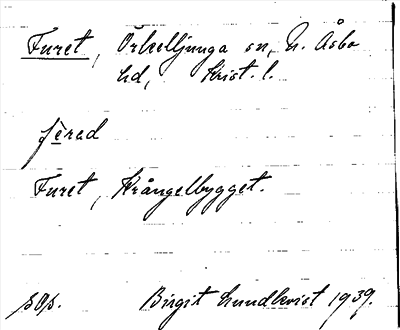 Furet, Örkelljunga sn, N. Åsbo
hd, Krist. l.
fèrad
Furet, Krångelbygget.
sOp. Birgit Lundkvist 1939.